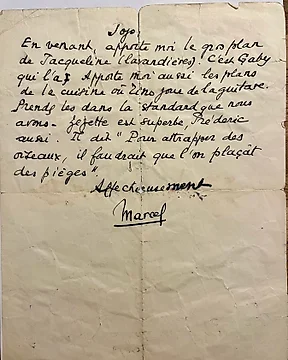 Jojo.
En venant, apporte moi le gros plan
de Jacqueline (lavandières). C'est Gaby
qui l'a. Apporte moi aussi les plans
de la cuisine où Lino joue de la guitare.
Prends les dans la standard que nous
avons. Zézette est superbe, Fréderic
aussi. Il dit " Pour attrapper des
oiseaux, il faudrait que l'on plaçat
des pièges ".
Affectueusement
Marcel